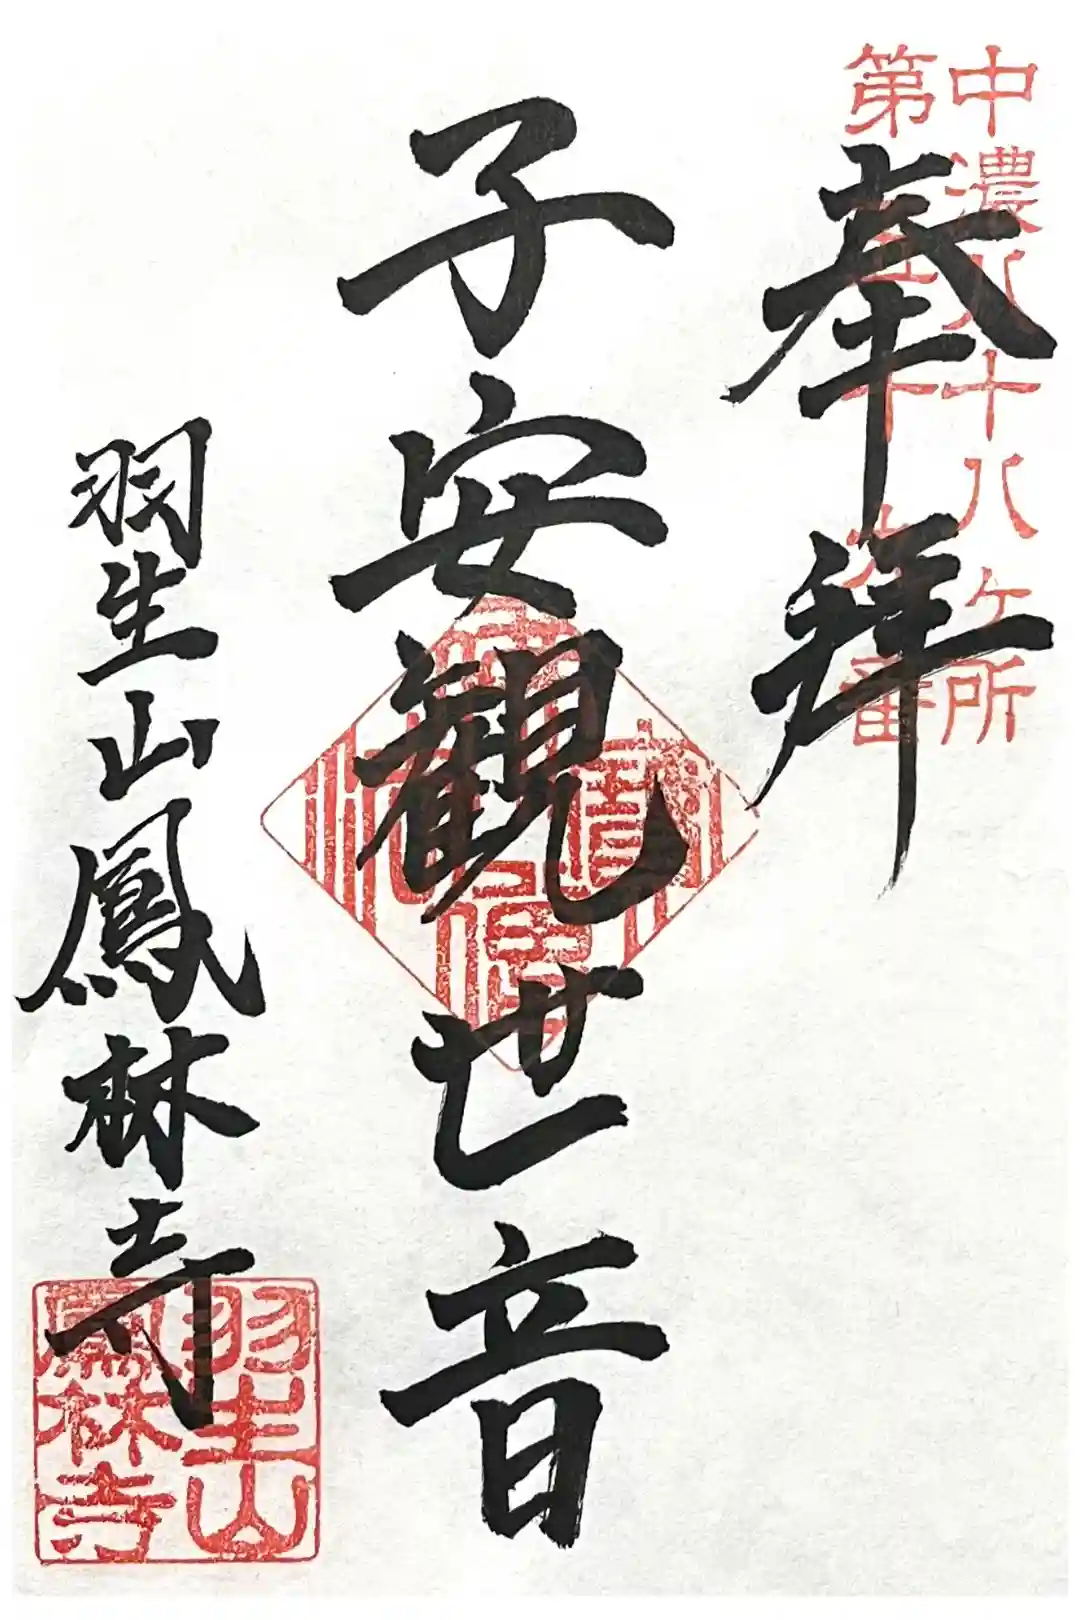 中濃八十八ヶ所
第五十六番
奉拝
子安観世音
羽生山鳳林寺
羽生山
鳳林寺